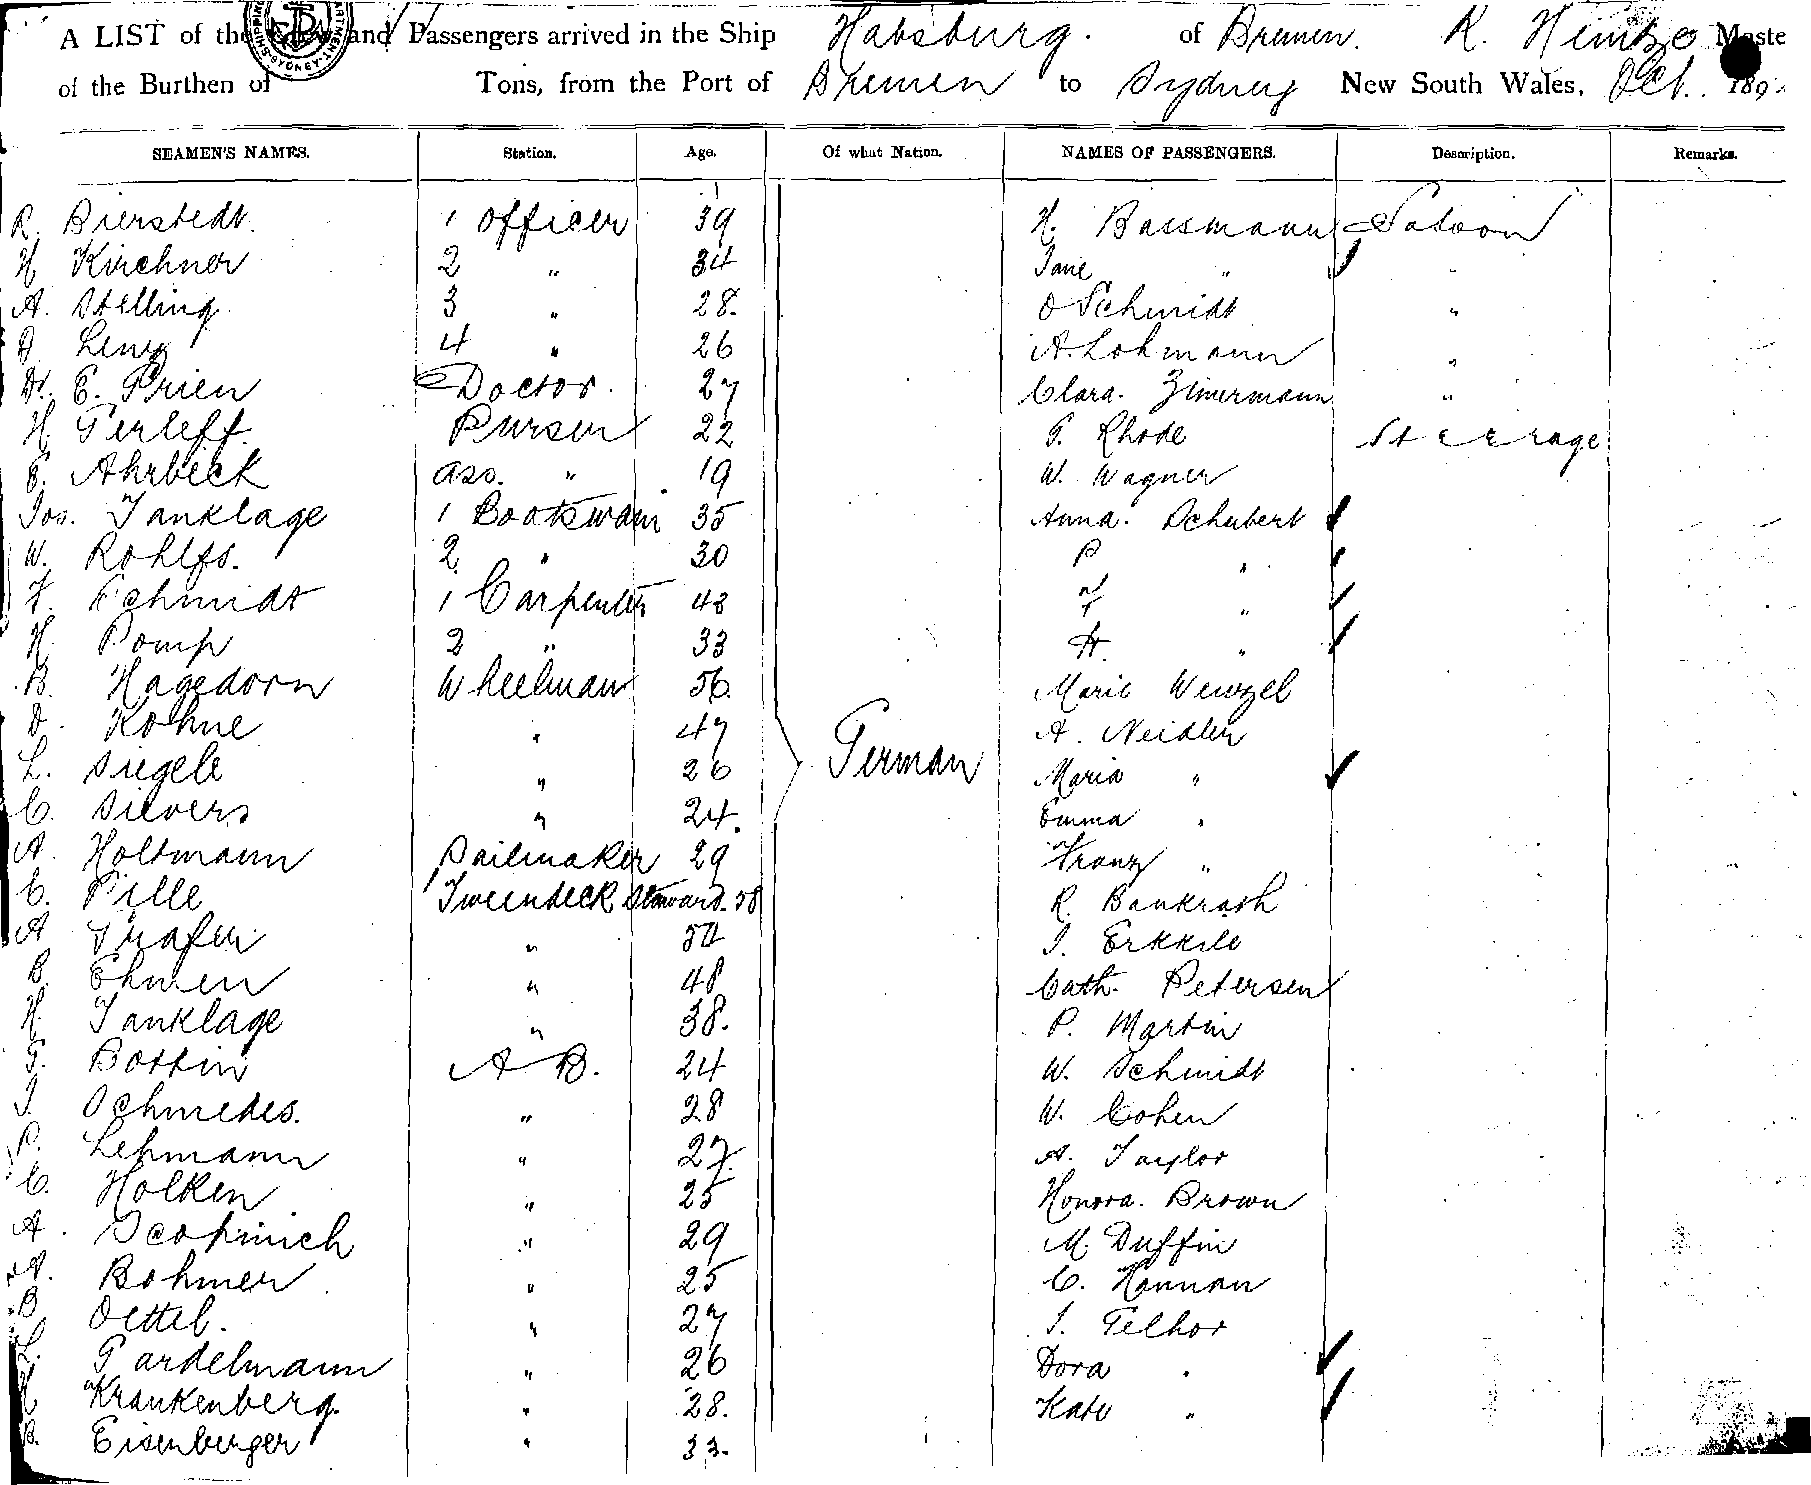 A LIST of the Crew and Passengers arrived in the Ship Habsburg. of Bremen. R. Hintze Maste
of the Burthen of Tons, from the Port of Bremen to Sydney New South Wales, Oct. 189
SEAMEN'S NAMES. Station. Age. Of what Nation. NAMES OF PASSENGERS. Description. Remarks.
R. Bierstedt. 1 Officer 39 H. Bassmann Saloon
H Kirchner 2 " 34 Jane " "
A. Stelling. 3 " 28. O Schmidt "
D. 4 " 26 A. Lohmann "
Dr. E. Prien Doctor. 27 Clara. Zimermann "
H. Gerleff. Purser 22 G. Rhode Steerage
E. Ahrbeck ass. " 19 W. Wagner
Jos. Tanklage 1 Boatswain 35 Anna. Schubert
W. Rohlfs. 2. " 30 P "
F. Schmidt 1 Carpenter 43 "
H. Pomp 2 " 33 H. "
B. Hagedorn Wheelman 56. Marie Wenzel
D. Kohne " 47 A. Neidler
L. Siegele " 26 German Maria "
C. Sievers " 24. Emma "
A. Holtmann Sailmaker 29 Franz "
C. Pille Tweendeck Steward. 58 R. Bankrath
A " 52 J. Erkkile
B. Ehmen " 48 Cath. Petersen
H. Tanklage " 38. P. Martin
G. Bottin A B. 24 W. Schmidt
J. Schmedes. " 28 W. Cohen
P. Lehmann " 27. A. Taylor
C. Holken " 25 Honora. Brown
A. Scopinich " 29 M. Duffin
A. Bohmer " 25 C. Hannan
B Oettel. " 27 J. Gelhor
L. Gardelmann " 26 Dora "
Krankenberg. " 28. Kate "
B. Eisenberger " 33.